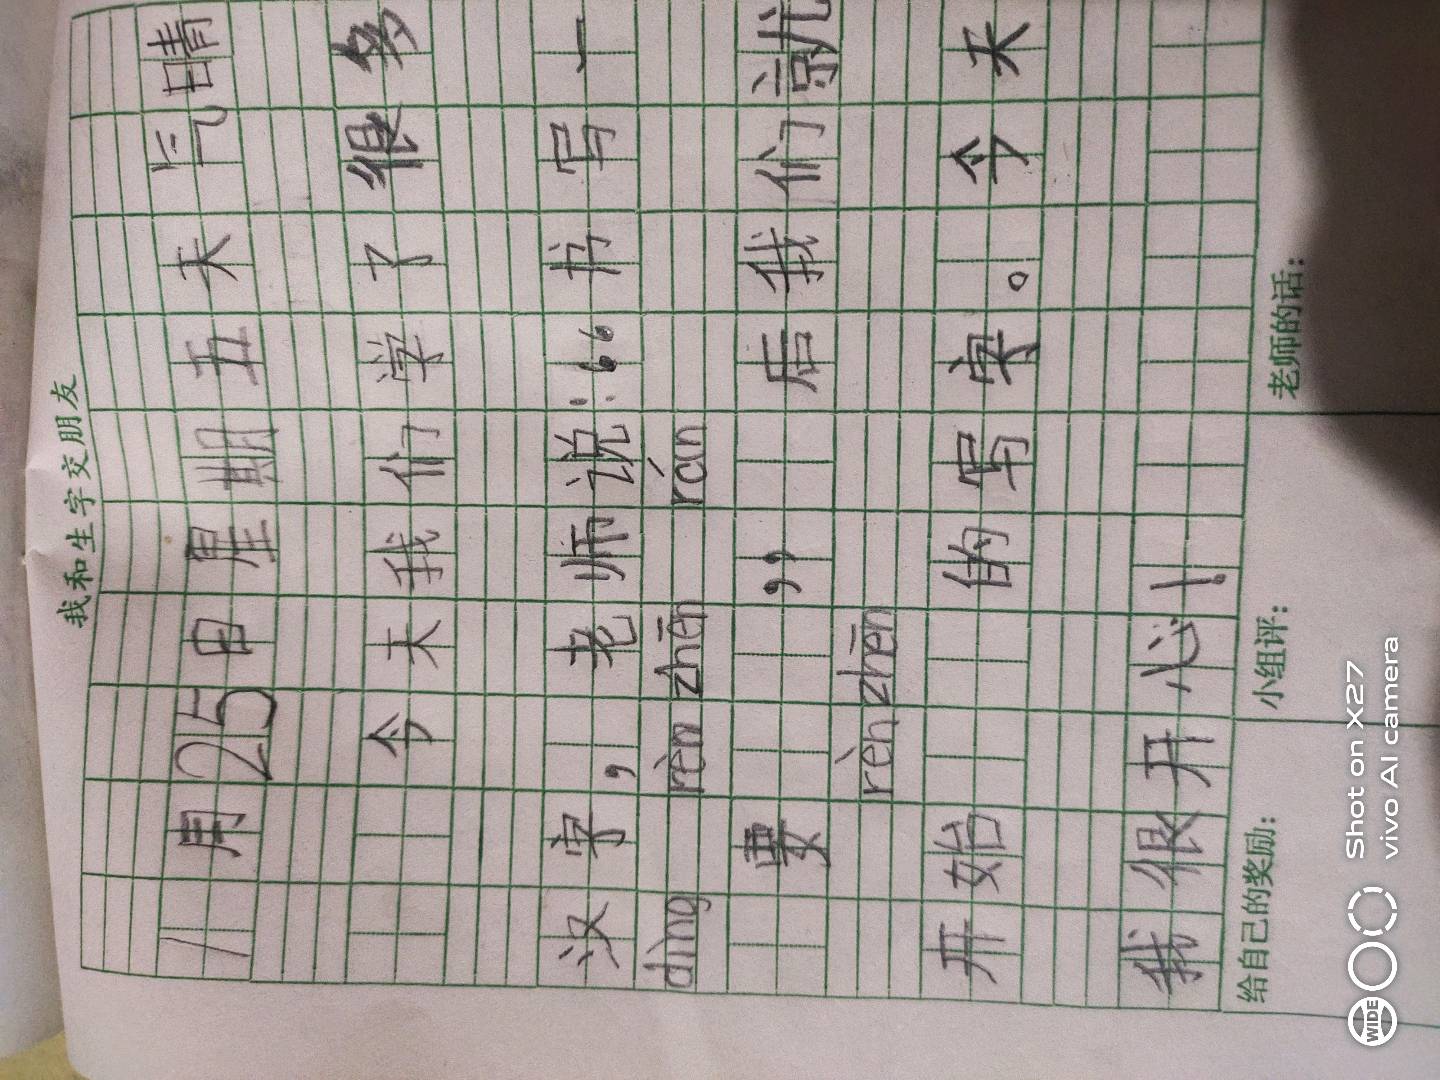 我和生字交朋友
1月25日星期五天气晴
今天我们学了很多
汉字，老师说：“书写一
dìng rèn zhēn rán
要，”后我们就
rèn zhēn
开始的写实。今天
我很开心！
给自己的奖励： 小组评： 老师的话：
WIDE
Shot on X27
vivo AI camera